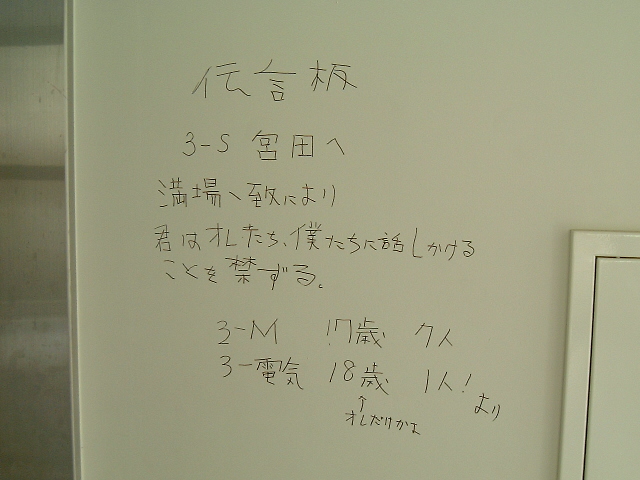 伝言板
3-S 宮田へ
満場一致により
君はオレたち、僕たちに話しかける
ことを禁ずる。
3-M 17歳 7人
3-電気 18歳 1人!
より
↑
オレだけかよ